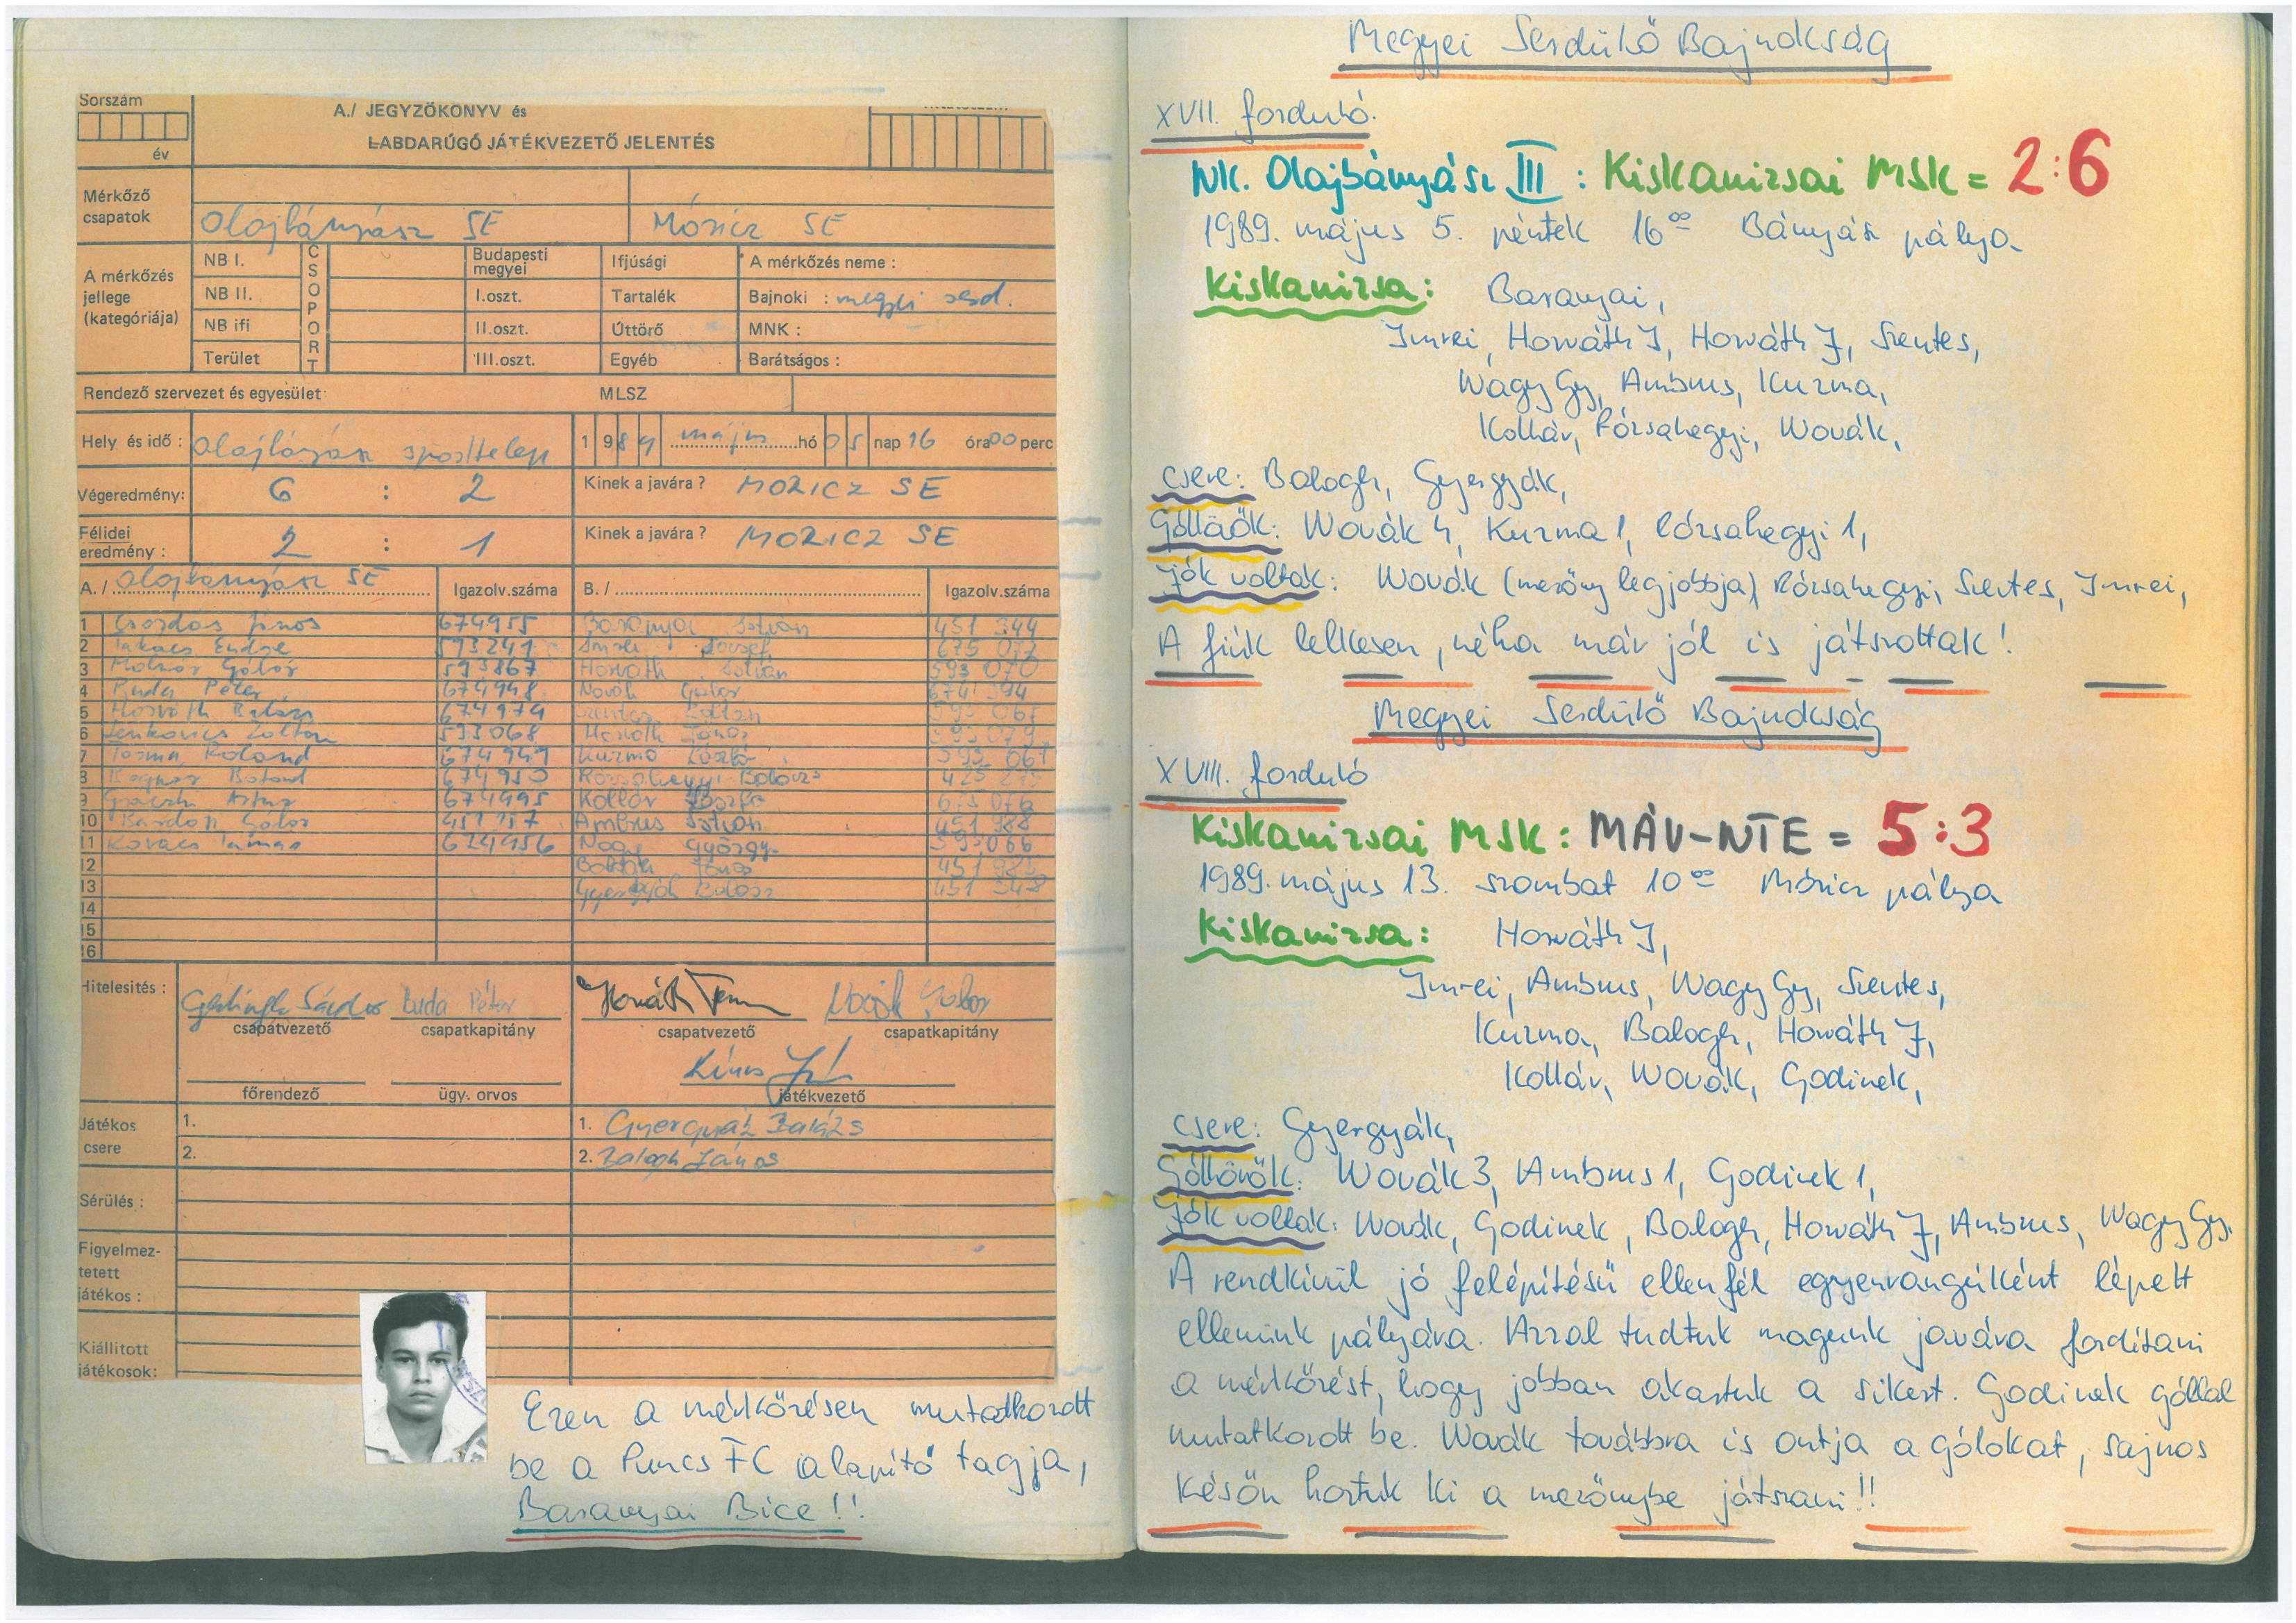 Sorszám
év
A./ JEGYZŐKÖNYV és
LABDARÚGÓ JÁTÉKVEZETŐ JELENTÉS
Mérkőző csapatok
Olajbányász SE
Móricz SE
A mérkőzés jellege (kategóriája)
NB I.
NB II.
NB ifi
Terület
CSOPORT
Budapesti megyei
I.oszt.
II.oszt.
III.oszt.
Ifjúsági
Tartalék
Úttörő
Egyéb
A mérkőzés neme :
Bajnoki : megyei serd.
MNK :
Barátságos :
Rendező szervezet és egyesület:
MLSZ
Hely és idő : Olajbányász sporttelep 1989 május hó 05 nap 16 óra 00 perc
Végeredmény: 6 : 2 Kinek a javára ? MORICZ SE
Félidei eredmény : 2 : 1 Kinek a javára ? MORICZ SE
A./ Olajbányász SE Igazolv.száma B./ Igazolv.száma
1 Csordas János 674955 Baranyai István 451 344
2 Takács Endre 593241 Imrei József 675 077
3 Molnár Gábor 593867 Horváth István 593 070
4 Ruda Péter 674948 Novák Gábor 674 394
5 Horváth Balázs 674974 Szentes Zoltán
6 Zoltán 593068 Horváth János 593 079
7 Roland 674949 Kuzma László
8 Botond 674950 Rózsahegyi Balázs
9 674995 Kollár 675 076
10 Gábor Ambrus István 451 388
11 Kovács Tamás 674956 Nagy György 593 066
12 Balogh János
13 Gyergyák Balázs 451 348
14
15
16
Hitelesités :
Sándor Ruda Péter Horváth Novák Gábor
csapatvezető csapatkapitány csapatvezető csapatkapitány
főrendező ügy. orvos játékvezető
Játékos csere
1. 1. Gyergyák Balázs
2. 2. Balogh János
Sérülés :
Figyelmeztetett játékos :
Kiállított játékosok:
Ezen a mérkőzésen mutatkozott
be a Puncs FC alapító tagja,
Baranyai Bice!!
Megyei Serdülő Bajnokság
XVII. forduló.
NK. Olajbányász III : Kiskanizsai MSK = 2:6
1989. május 5. péntek 16⁰⁰ Bányász pálya
Kiskanizsa: Baranyai,
Imrei, Horváth I, Horváth J, Szentes,
Nagy Gy, Ambrus, Kuzma,
Kollár, Rózsahegyi, Novák,
csere: Balogh, Gyergyák,
Góllövők: Novák 4, Kuzma 1, Rózsahegyi 1,
Jók voltak: Novák (mezőny legjobbja) Rózsahegyi, Szentes, Imrei,
A fiúk lelkesen, néha már jól is játszottak!
Megyei Serdülő Bajnokság
XVIII. forduló
Kiskanizsai MSK : MÁV-NTE = 5:3
1989. május 13. szombat 10⁰⁰ Móricz pálya
Kiskanizsa: Horváth I,
Imrei, Ambrus, Nagy Gy, Szentes,
Kuzma, Balogh, Horváth J,
Kollár, Novák, Godinek,
csere: Gyergyák,
Góllövők: Novák 3, Ambrus 1, Godinek 1,
Jók voltak: Novák, Godinek, Balogh, Horváth J, Ambrus, Nagy Gy.
A rendkívül jó felépítésű ellenfél egyenrangúként lépett
ellenünk pályára. Azzal tudtuk magunk javára fordítani
a mérkőzést, hogy jobban akartuk a sikert. Godinek góllal
mutatkozott be. Novák továbbra is ontja a gólokat, sajnos
későn hoztuk ki a mezőnybe játszani!!